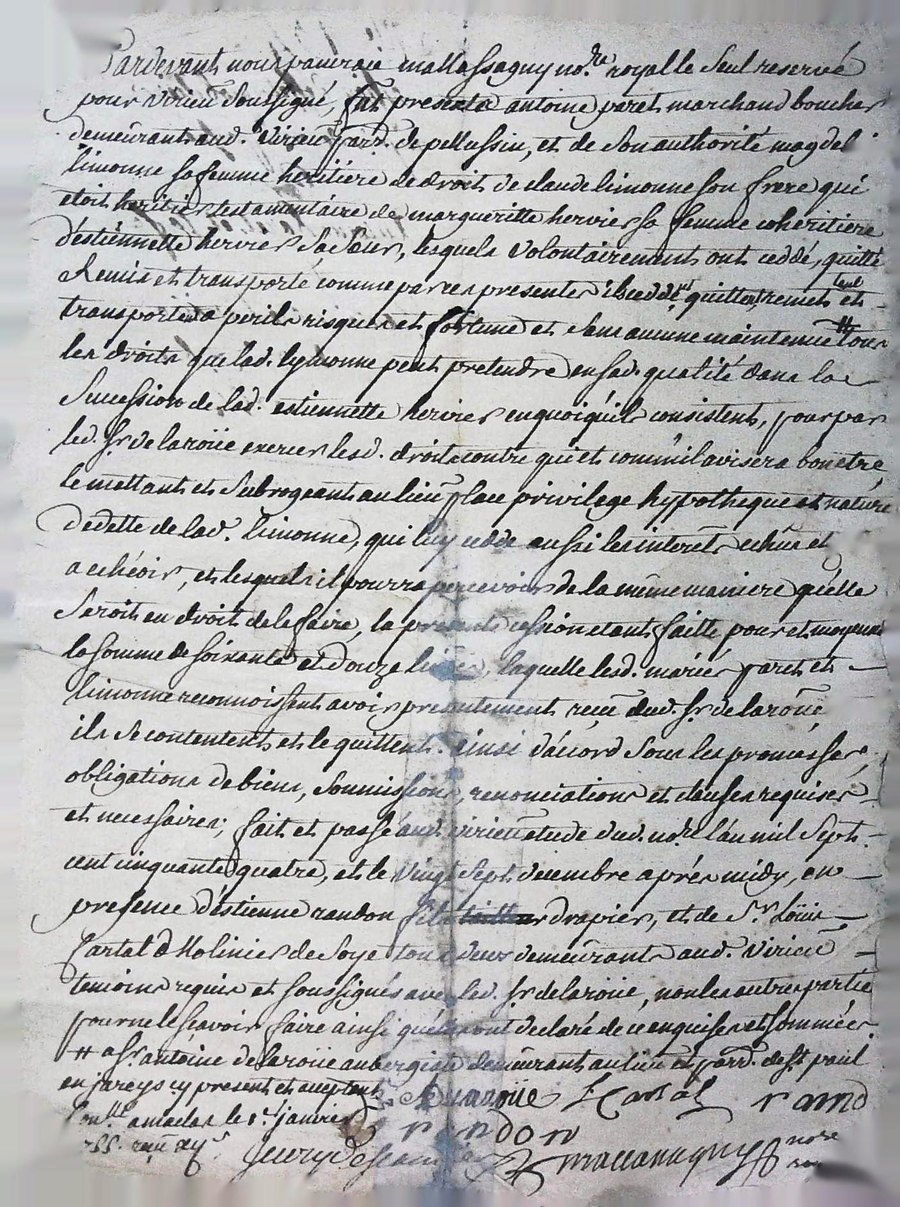 Pardevant nous
no.re royal le seul reservé
pour virieu soussigné, fut presents antoine paret marchand boucher
demeurant aud. virieu parr. de pellussin, et de son authorité magdel.
limonne sa femme heritiere de droit de claude limonne son frere qui
etoit heritier testamentaire de margueritte hervier sa femme coheritiere
d'estiennette hervier sa sœur, lesquels volontairement ont ceddé, quitté
Remis et transporté comme par ces presentes ils ceddent, quittent, remettent et
transportent a perils risques et fortune et sans aucune maintenue # tous
les droits que lad. lymonne peut pretendre en sad. qualité dans la
succession de lad. estiennette hervier en quoi qu'ils consistent, pour par
led. sr. de laroüe exercer lesd. droits contre qui et comm'il avisera bon etre
le mettant et subrogeant au lieu place privilege hypotheque et nature
de dette de lad. limonne, qui luy cedde aussi les interets echus et
a echéoir, et lesquels il pourra percevoir de la même maniere qu'elle
seroit en droit de le faire, la presente cession etant faitte pour et moyenant
la somme de soixante et douze livres, laquelle lesd. mariés paret et
limonne reconnoissent avoir presentement reçüe dud. sr. de laroüe
ils se contentent et le quittent. ainsi d'accord sous les promesses,
obligations de biens, soumissions, renonciations et clauses requises
et necessaires; fait et passé aud. virieu etude dud. no.re l'an mil sept
cent cinquante quatre, et le vingt sept decembre aprés midy, en
presence d'estienne randon drapier, et de sr. Loüis
Cartal Molinier de soye tous deux demeurants aud. virieu
temoins requis et soussignés avec led. sr. de laroüe, non les autres parties
pour ne le sçavoir faire ainsi qu'ils ont declaré de ce enquises et sommées
# a sr. antoine de laroüe aubergiste demeurant au lieu et parr. de st. paul
en jareys cy present et acceptant
Delaroüe L Cartal rand
le 1.r janvier
randon
55.
nore